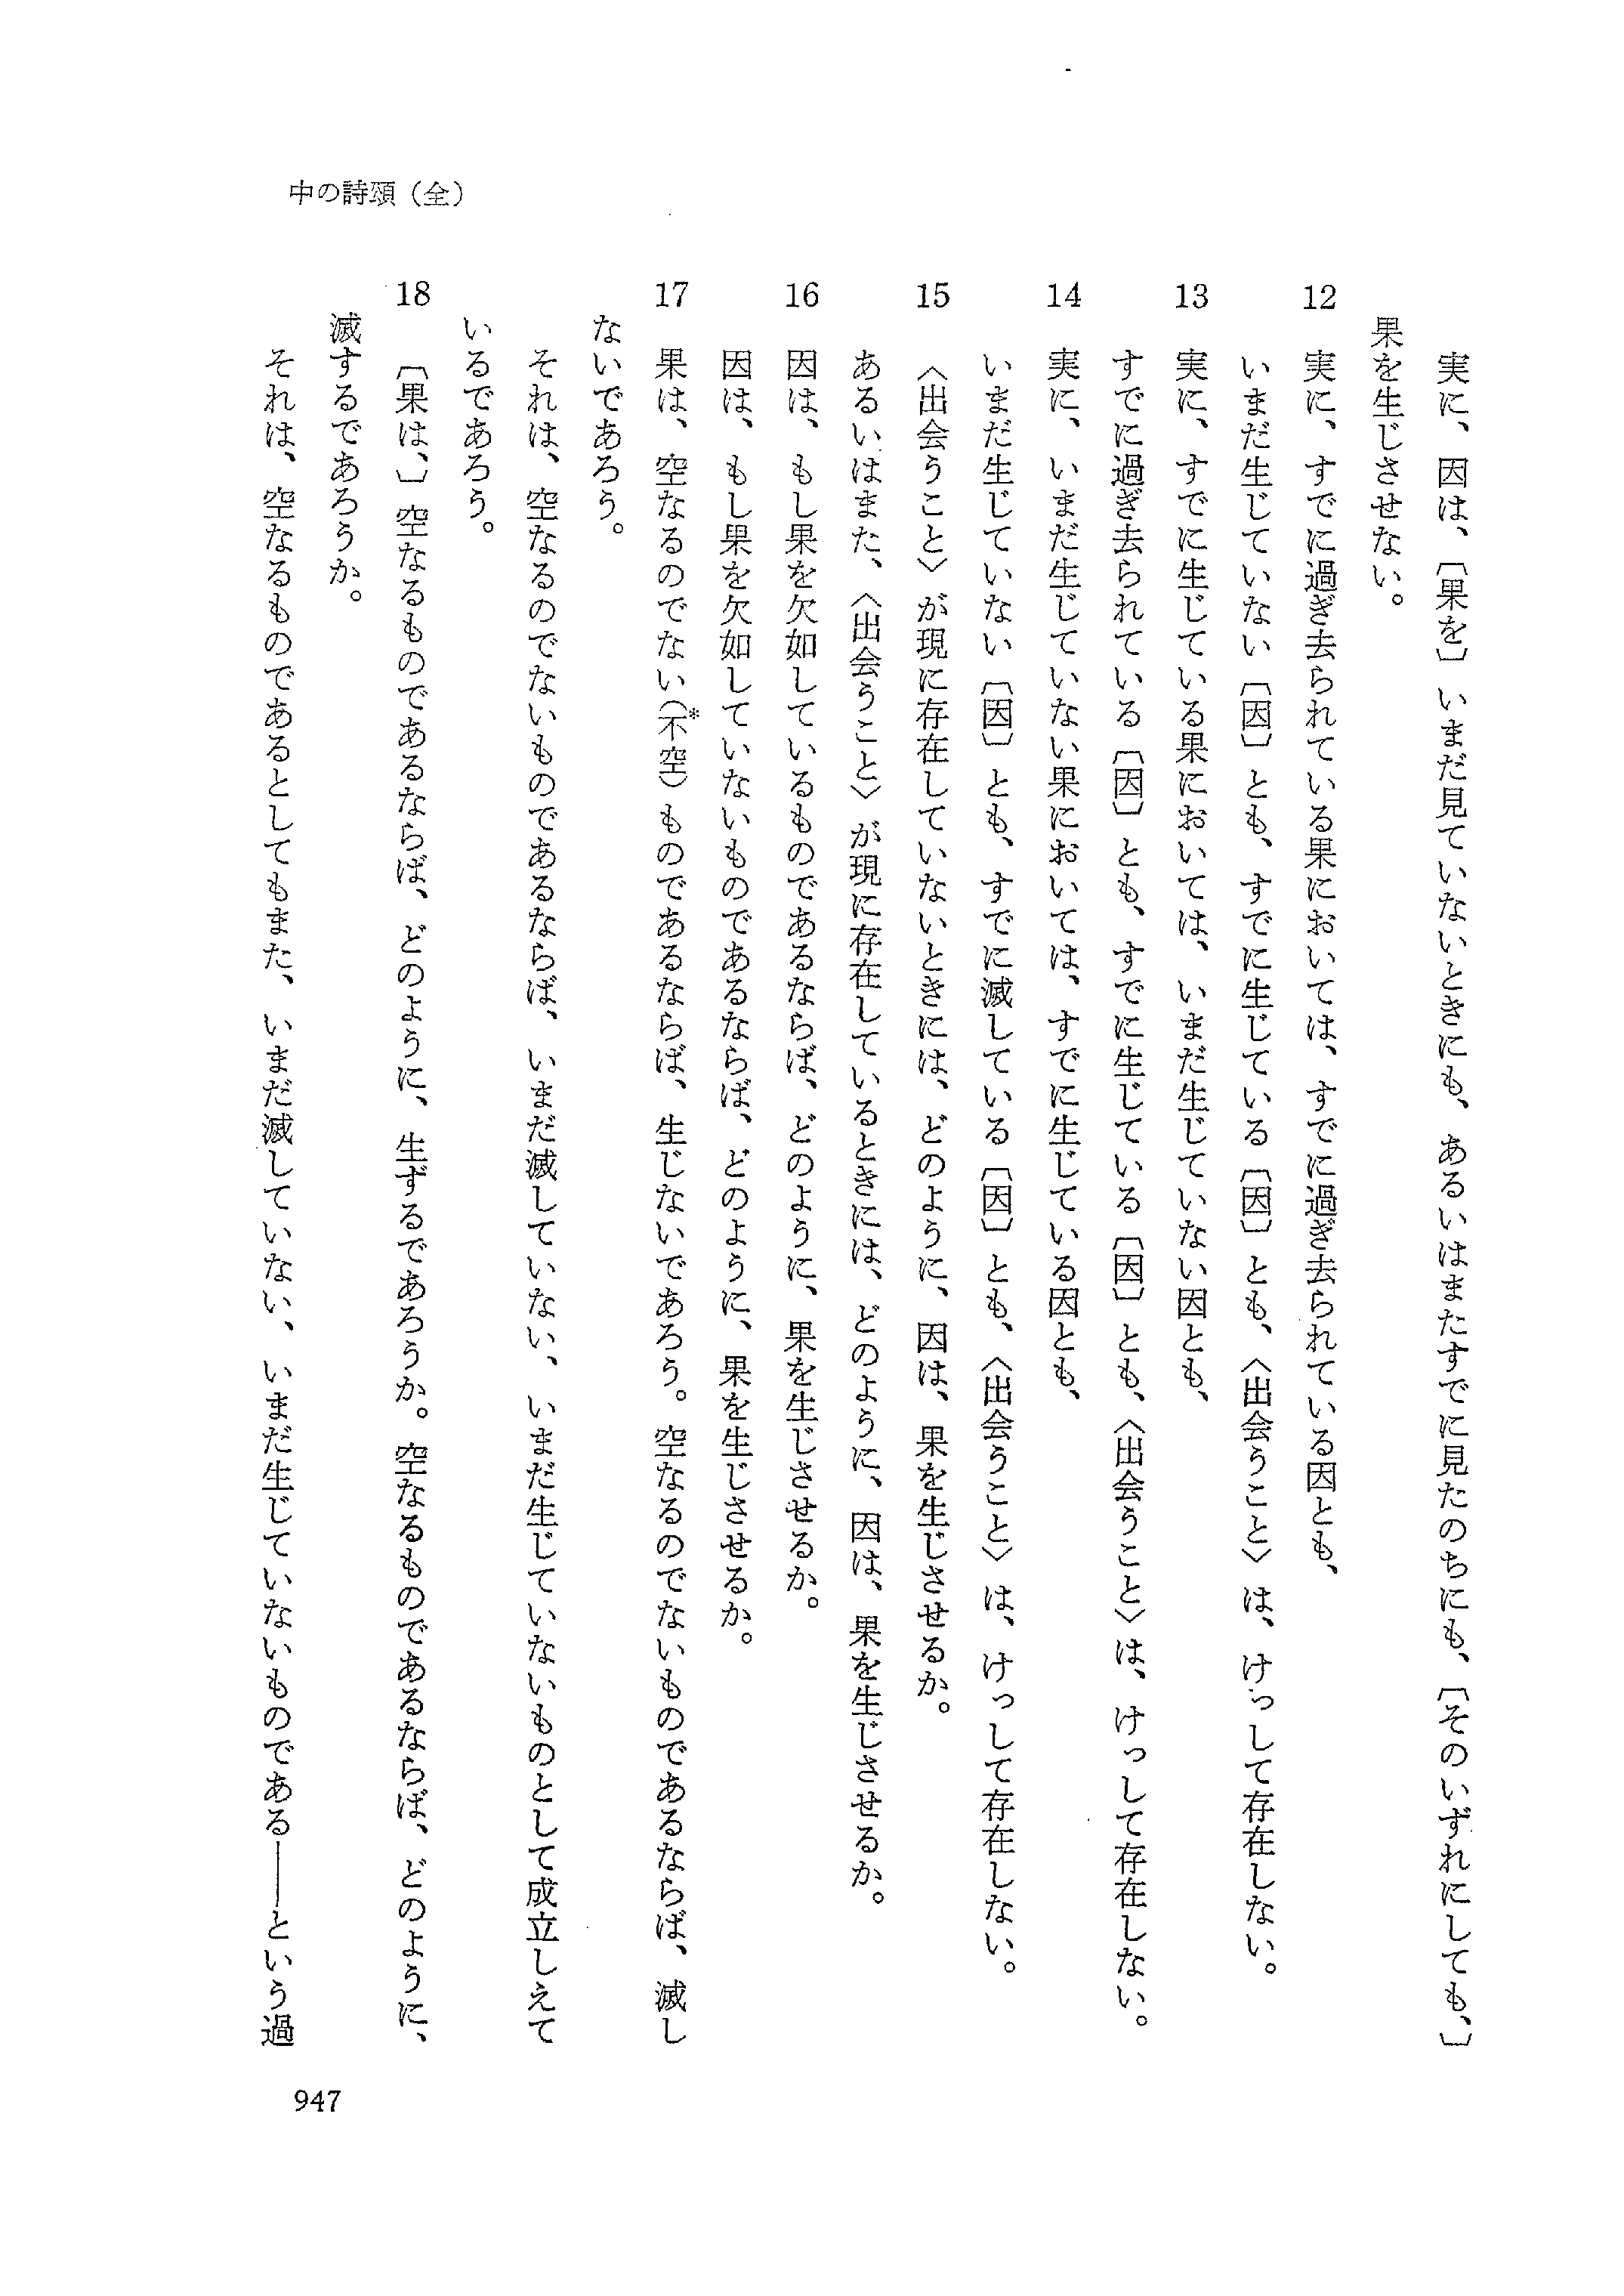 中の詩頌（全）
実に、因は、〔果を〕いまだ見ていないときにも、あるいはまたすでに見たのちにも、〔そのいずれにしても、〕
果を生じさせない。
12 実に、すでに過ぎ去られている果においては、すでに過ぎ去られている因とも、
いまだ生じていない〔因〕とも、すでに生じている〔因〕とも、〈出会うこと〉は、けっして存在しない。
13 実に、すでに生じている果においては、いまだ生じていない因とも、
すでに過ぎ去られている〔因〕とも、すでに生じている〔因〕とも、〈出会うこと〉は、けっして存在しない。
14 実に、いまだ生じていない果においては、すでに生じている因とも、
いまだ生じていない〔因〕とも、すでに滅している〔因〕とも、〈出会うこと〉は、けっして存在しない。
15 〈出会うこと〉が現に存在していないときには、どのように、因は、果を生じさせるか。
あるいはまた、〈出会うこと〉が現に存在しているときには、どのように、因は、果を生じさせるか。
16 因は、もし果を欠如しているものであるならば、どのように、果を生じさせるか。
因は、もし果を欠如していないものであるならば、どのように、果を生じさせるか。
17 果は、空なるのでない（不空）*ものであるならば、生じないであろう。空なるのでないものであるならば、滅し
ないであろう。
それは、空なるのでないものであるならば、いまだ滅していない、いまだ生じていないものとして成立しえて
いるであろう。
18 〔果は、〕空なるものであるならば、どのように、生ずるであろうか。空なるものであるならば、どのように、
滅するであろうか。
それは、空なるものであるとしてもまた、いまだ滅していない、いまだ生じていないものである——という過
947